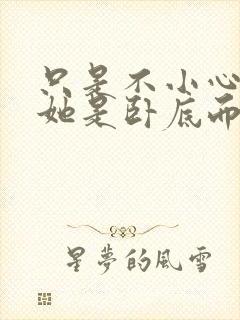 只是不小心
她是卧底而
星夢的風雪